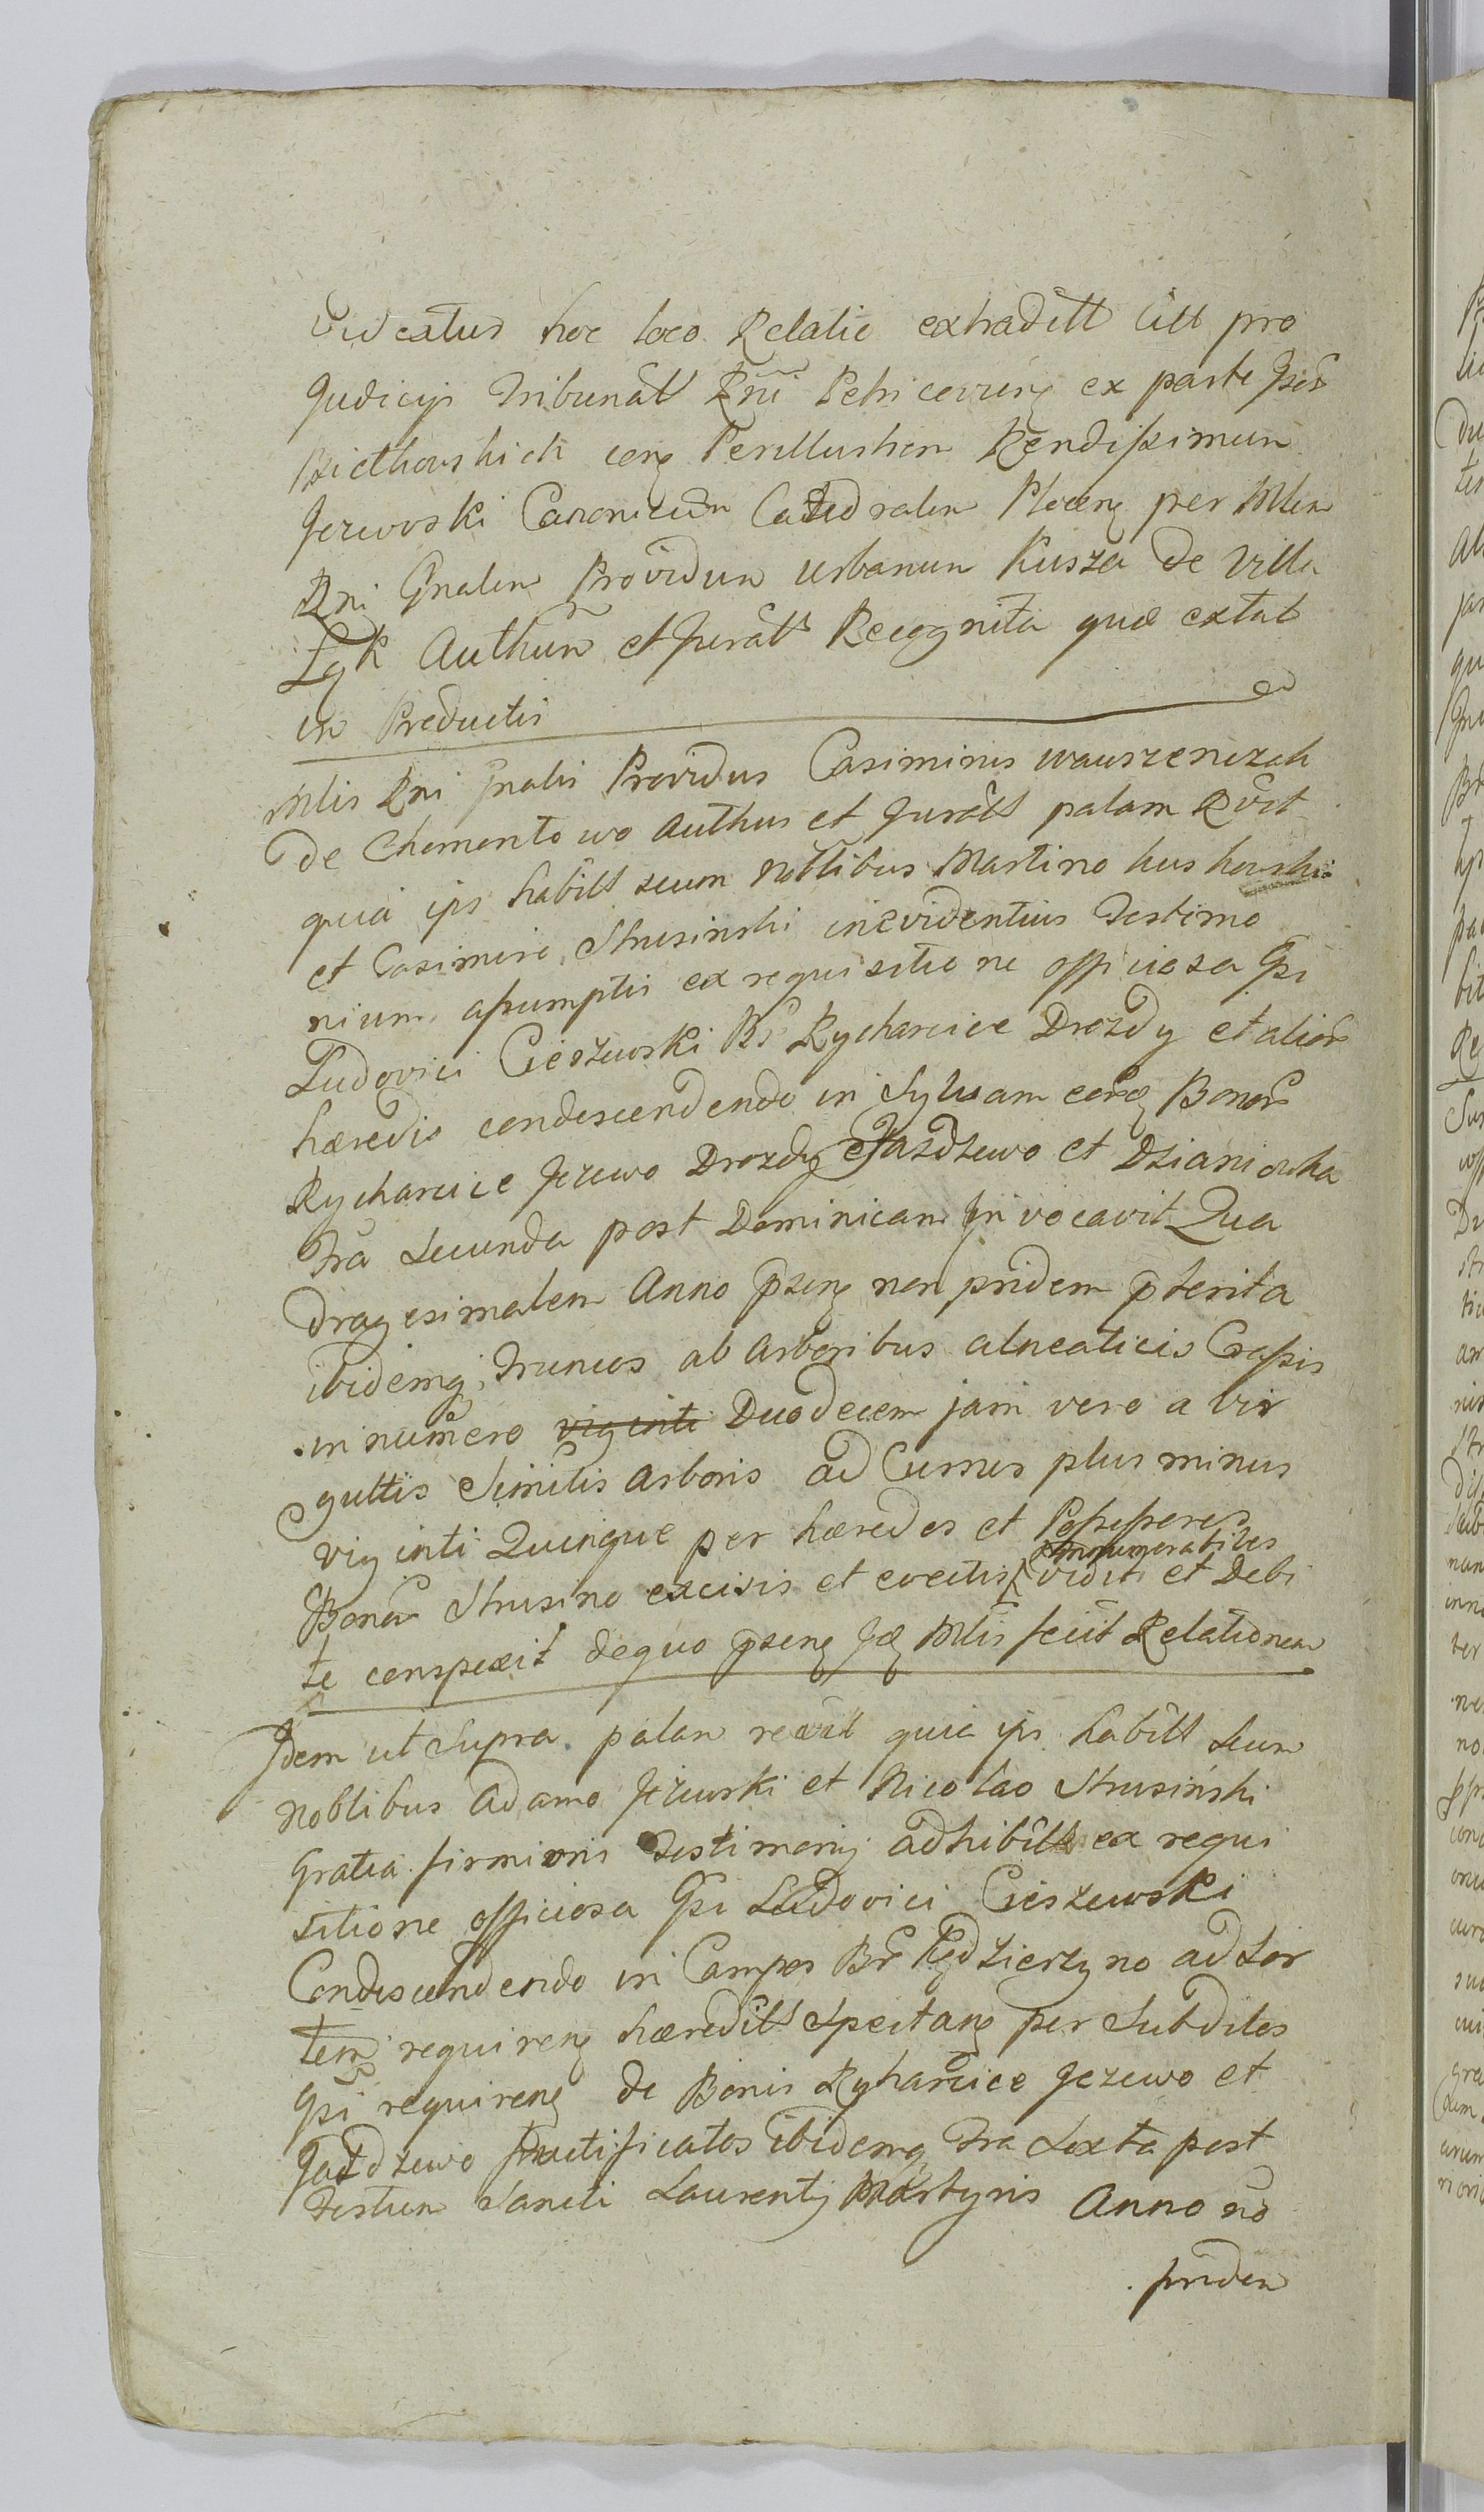 Videatur hoc loco Relatio extraditt citt pro
Judicijs Tribunalt Rni Petricovieñ ex parte Gsor
Psiethowskich coñ Perillustrem Rendissimum
Jezewski Canonicum Catedralem Ploceñ per Mlem
Rni Gnalem Providum Urbanum Kusza de Villa
Łęk Authum et Juratt Recognita quæ extat
in Productis
Mlis Rni Gnalis Providus Casimirus Wawrzenczak
De Chomentowo Authus et Juratt palam Rvit
quia ips habitt secum Nobilibus Martino Kuskowski
et Casimiro Strusinski in evidentius Testimo
nium assumptis ex requisitione officiosa Gsi
Ludovici Cieszewski Br Rycharcice Drozdy et alior
hæredis condescendendo in Sylvam eorq Bonor
Rycharcice Jezewo Drozdy Jazdzewo et Dzianowka
Fria Secunda post Dominicam Invocavit Qua
Dragesimalem Anno pseñ non pridem pterita
ibidemq Truncos ab arboribus alneaticis Crassis
in numero viginti Duodecem jam vero a vir
gultis Similis arboris ad Currus plus minus
viginti Quinque per hæredes et Possessores
Bonor Strusino excisis et evectis vidit et Debi
innumerabiles
te conspexit dequo pseñ Jdq Mlis fecit Relationem
Jdem ut Supra palam revit quia ips habitt Secum
Noblibus Adamo Jezewski et Nicolao Strusiński
Gratia firmioris Testimonij adhibitt ex requi
sitione officiosa Gsi Ludovici Cieszewski
Condescendendo in Campos Br Kędzierzyno ad Sor
tem requireñ hæreditt Spectanq per Subditos
Gsi requireñ de Bonis Ryharcice Jezewo et
Jazdzewo fructificatos ibidemq Fria Sexta post
Festum Sancti Laurentij Martyris Anno nō
pridem